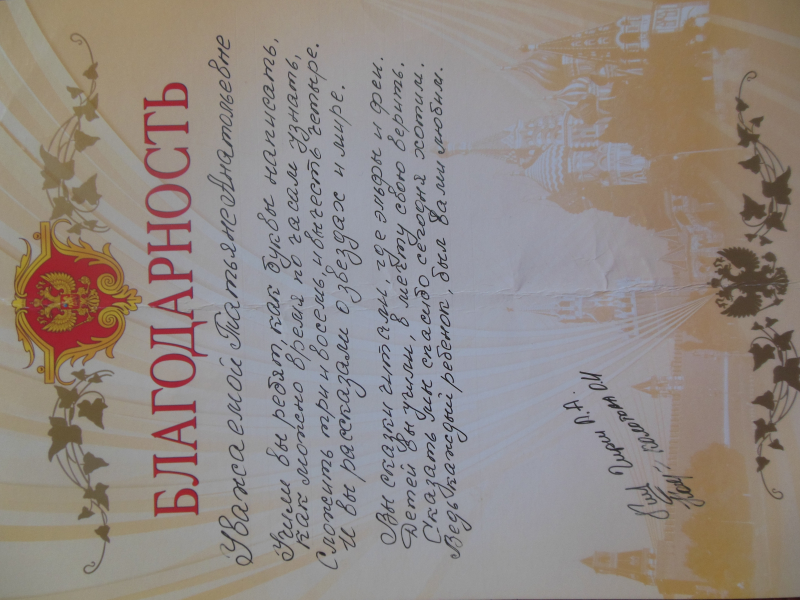 БЛАГОДАРНОСТЬ
Уважаемой Татьяне Анатольевне
Учили вы ребят, как буквы написать,
Как можно время по часам узнать,
Сложить три и восемь, и вычесть четыре.
И вы рассказали о звёздах и мире.
Вы сказки читали, где эльфы и феи.
Детей вы учили, в мечту свою верить.
Сказать мы спасибо сегодня хотим.
Ведь каждый ребенок, был вами любим.